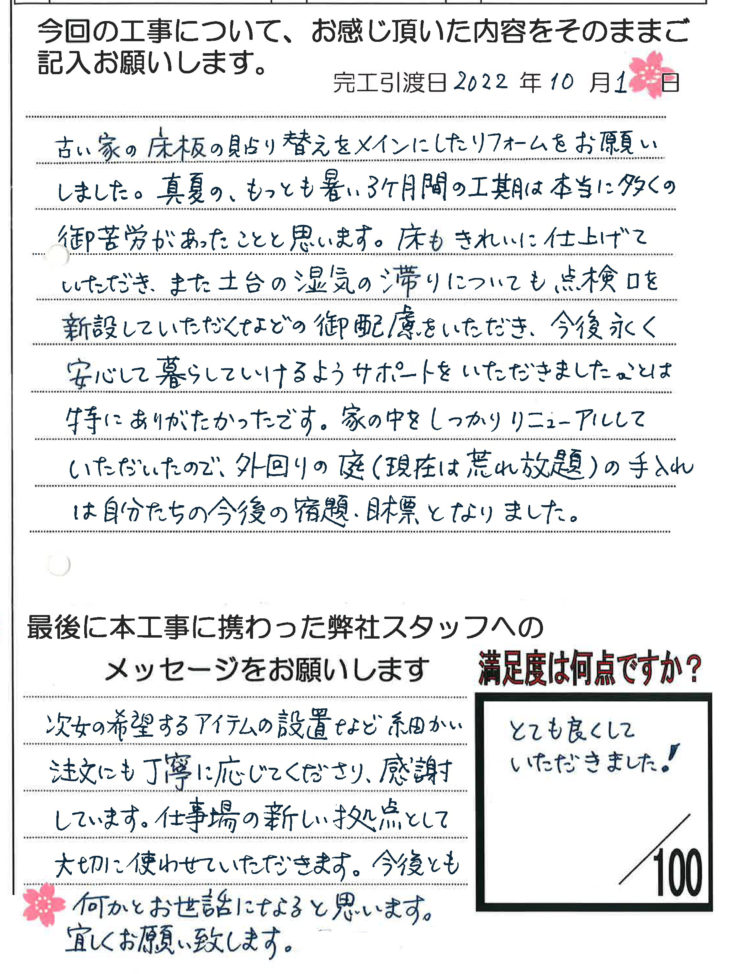 今回の工事について、お感じ頂いた内容をそのままご
記入お願いします。
完工引渡日2022年10月1日
古い家の床板の貼り替えをメインにしたリフォームをお願い
しました。真夏の、もっとも暑い3ケ月間の工期は本当に多くの
御苦労があったことと思います。床もきれいに仕上げて
いただき、また土台の湿気の滞りについても点検口を
新設していただくなどの御配慮をいただき、今後永く
安心して暮らしていけるようサポートをいただきましたことは
特にありがたかったです。家の中をしっかりリニューアルして
いただいたので、外回りの庭(現在は荒れ放題)の手入れ
は自分たちの今後の宿題、目標となりました。
最後に本工事に携わった弊社スタッフへの
メッセージをお願いします
次女の希望するアイテムの設置など細かい
注文にも丁寧に応じてくださり、感謝
しています。仕事場の新しい拠点として
大切に使わせていただきます。今後とも
何かとお世話になると思います。
宜しくお願い致します。
満足度は何点ですか?
とても良くして
いただきました!
/100